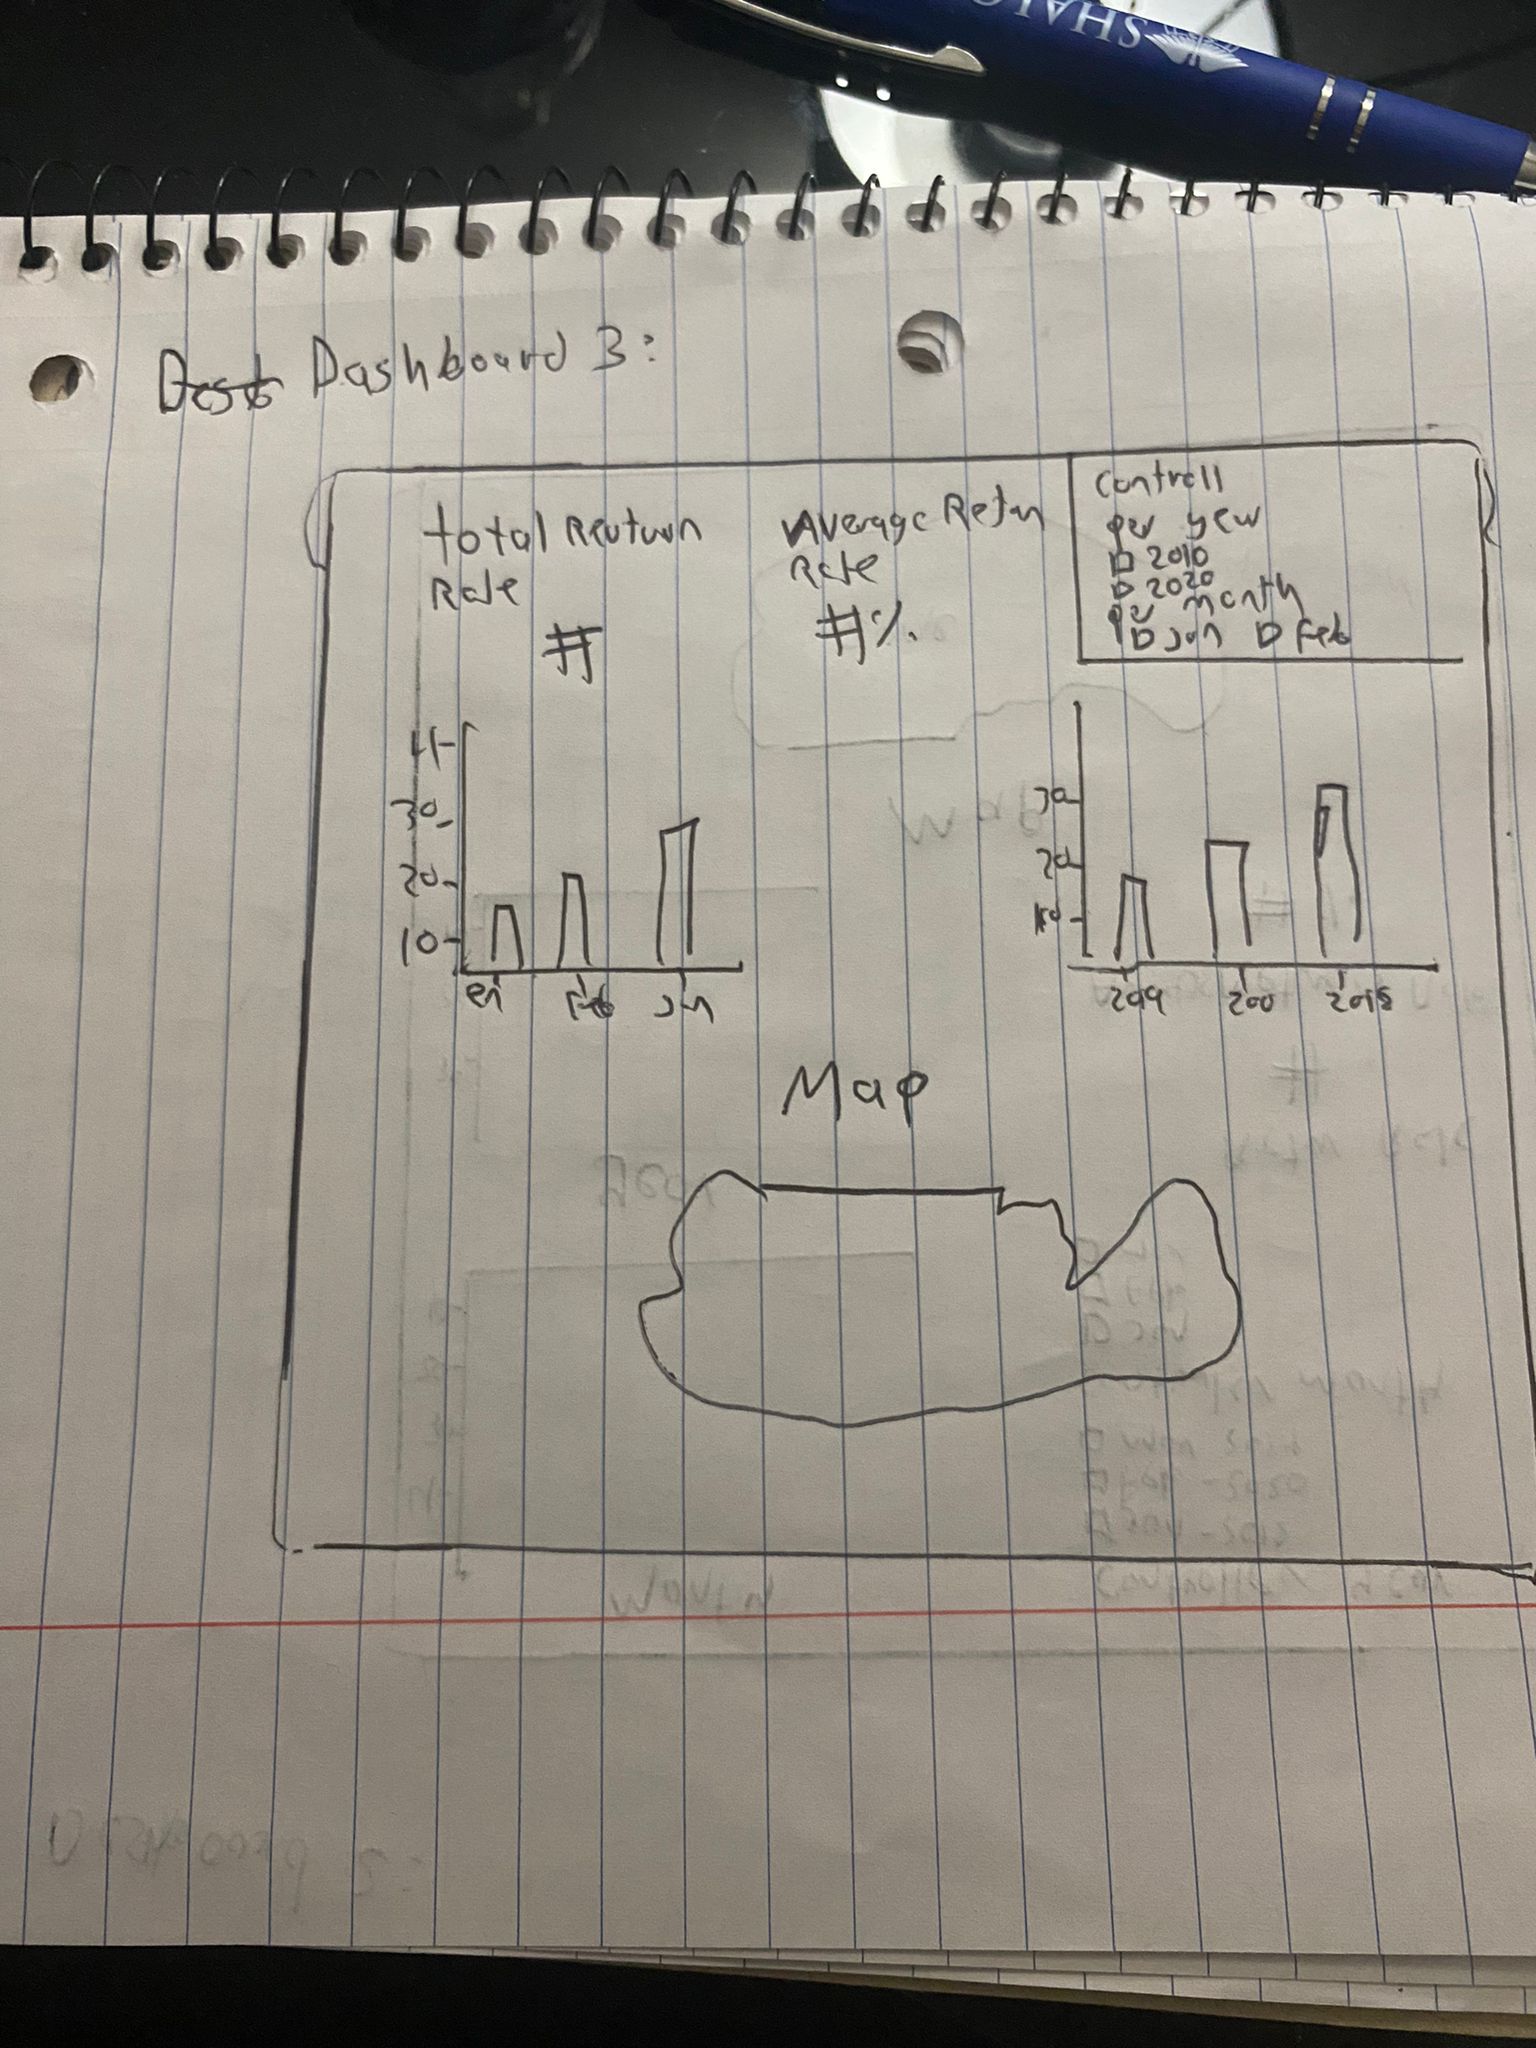 SHAL
Desb Dashboard 3:
total Reuturn
Rate
#
Average Retn
Rate
#%.
Controll
per year
2010
2020
per month
Jan Feb
30
20
10
en Feb Jan
30
20
10
2019 200 2018
Map